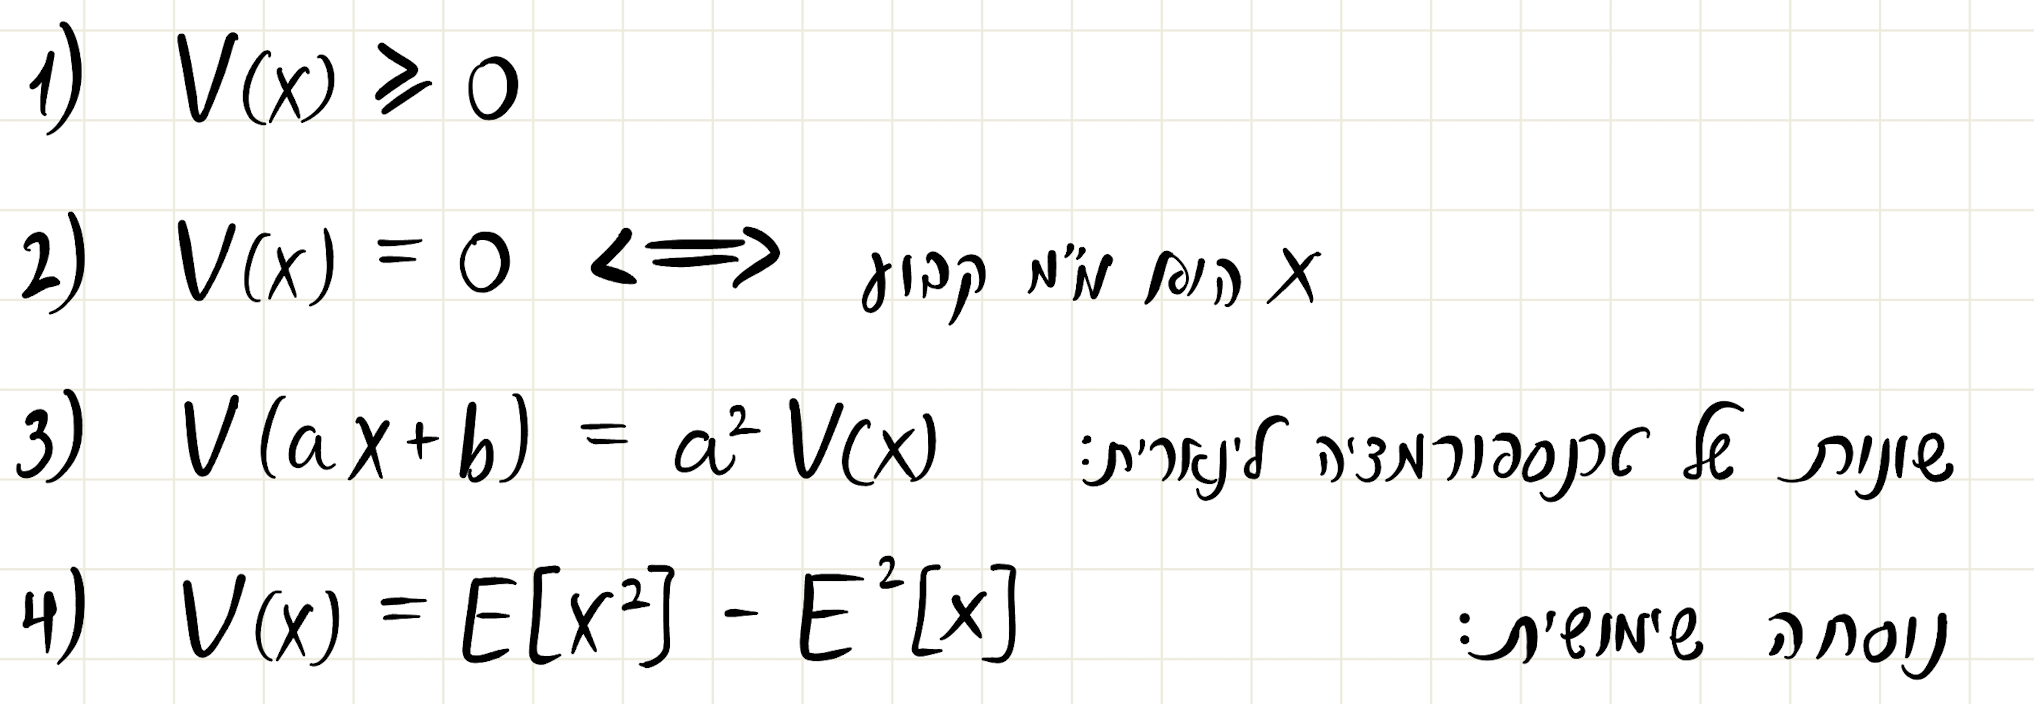 1) V(x) ≥ 0
2) V(x) = 0 <=> X הוא מ"מ קבוע
3) V(ax+b) = a² V(x) שונות של טרנספורמציה לינארית:
4) V(x) = E[x²] - E²[x] נוסחה שימושית: